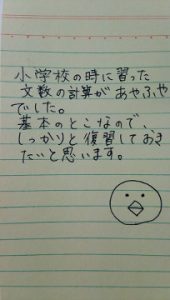 小学校の時に習った
文数の計算があやふや
でした。
基本のとこなので、
しっかりと復習しておき
たいと思います。